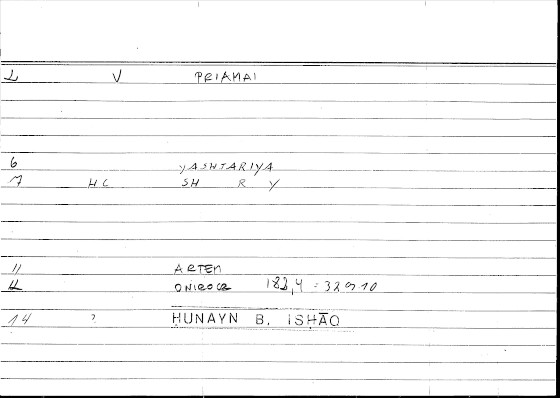 L V PRIAMAI
6 YASHTARIYA
7 HC SH R Y
11 ARTEM
12 ONIROCR 183,4 = 32910
14 ? ḤUNAYN B. ISḤĀQ